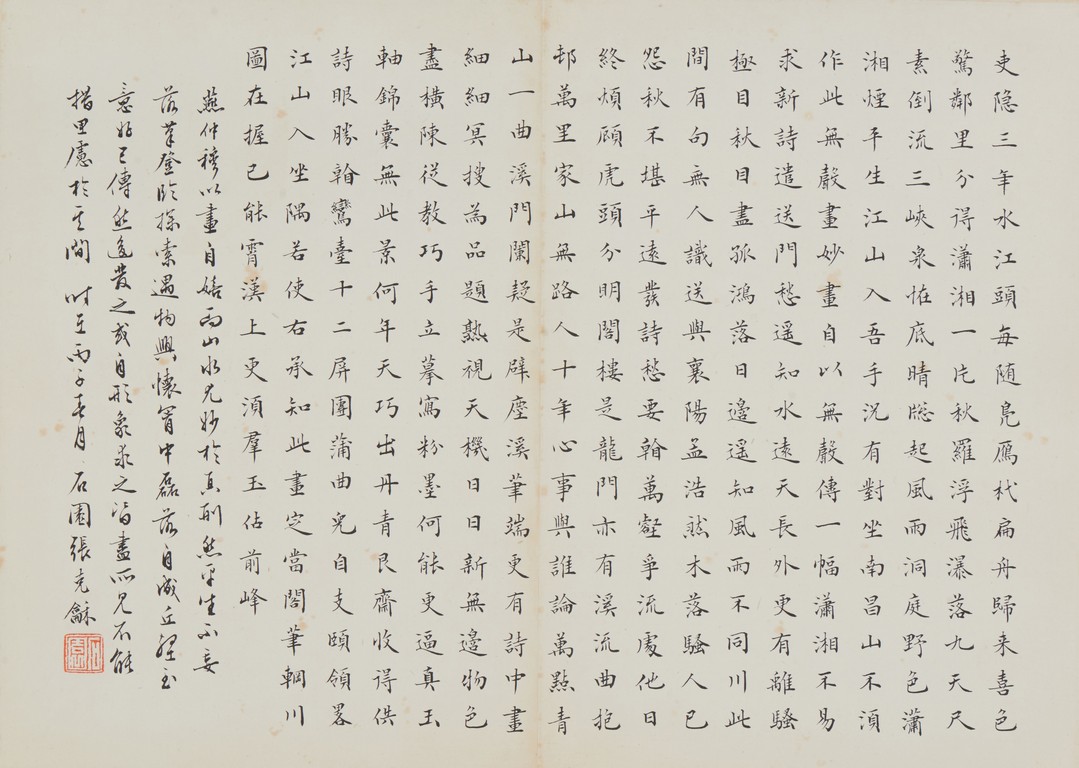 吏隐三年水江頭每随鳧鴈杙扁舟歸来喜色
驚鄰里分得瀟湘一片秋羅浮飛瀑落九天尺
素倒流三峽泉恠底晴牎起風雨洞庭野色瀟
湘煙平生江山入吾手況有對坐南昌山不湏
作此無聲畫妙畫自以無聲傳一幅瀟湘不易
求新詩遣送門愁遥知水遠天長外更有離騷
極目秋日盡孤鴻落日邊遥知風雨不同川此
間有句無人識送與襄陽孟浩然木落騷人已
怨秋不堪平遠發詩愁要翰萬壑爭流處他日
終煩顧虎頭分明閣樓是龍門亦有溪流曲抱
邨萬里家山無路人十年心事與誰論萬點青
山一曲溪門闌疑是辟塵溪筆端更有詩中畫
細細冥搜為品題熟視天機日日新無邊物色
盡横陳従教巧手立摹寫粉墨何能更逼真玉
軸錦囊無此景何年天巧出丹青艮齋收得供
詩眼勝翰鸞臺十二屏團蒲曲兒自支頤領畧
江山入坐隅若使右承知此畫定當閣筆輞川
圖在握已能霄漢上更湏羣玉佔前峰
燕仲穆以畫自娛而山水尤妙於真形然平生不妄
落筆登臨探索遇物興懷胷中磊落自成丘壑至
意好已傳然後發之或自形象求之皆盡所見不能
措思慮於其間 時在丙子春月 石園張克龢